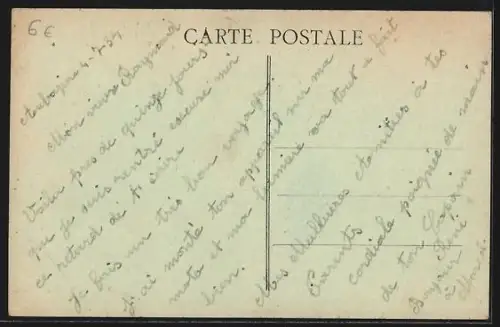 6 €
CARTE POSTALE
Aubazine 4-7-34
Mon vieux Raymond
Voilà près de quinze jours
que je suis rentré excuse moi
ce retard de t'écrire
Je fais un très bon voyage.
J'ai monté ton appareil sur ma
moto et ma lumière va tout à fait
bien.
Mes Meilleures amitiés à tes
Parents
cordiale poignée de main
de ton Copain
Bonjour
à René